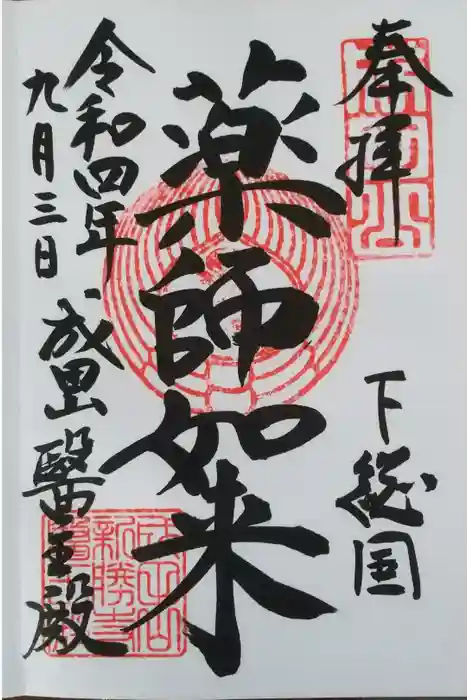 奉拝
下総国
薬師如来
令和四年
九月三日
成田山
醫王殿
成田山
新勝寺
醫王殿